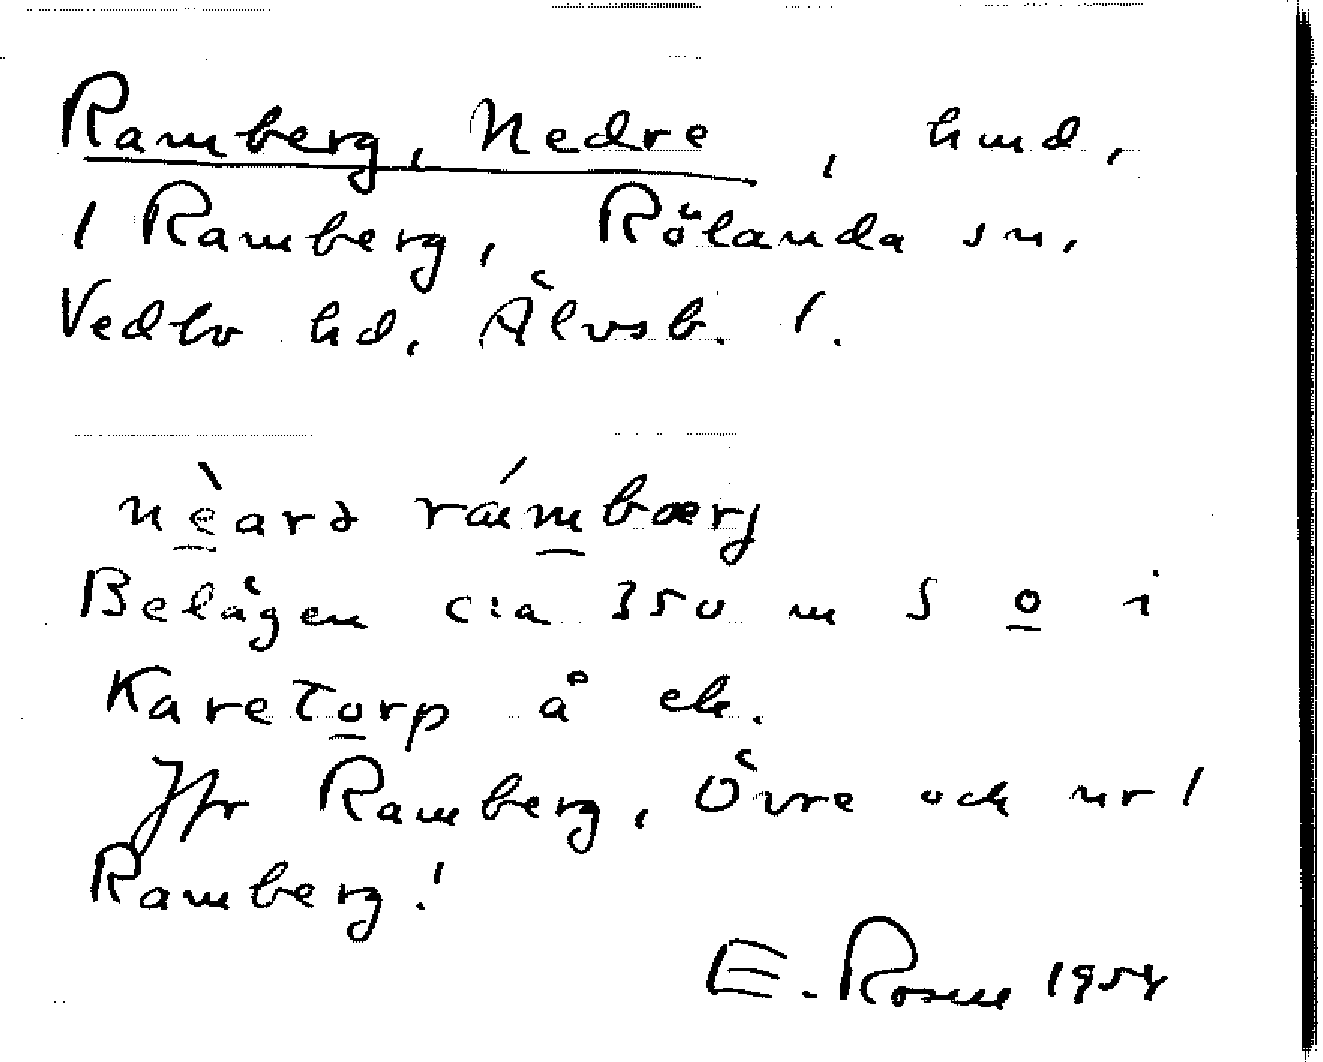 Ramberg, Nedre, hmd,
1 Ramberg, Rölanda sn,
Vedbo hd, Älvsb. l.
nèarə rámbærj
Belägen c:a 350 m S o i
Karetorp å ek.
Jfr Ramberg, Övre och nr 1
Ramberg!
E. Rosell 1954